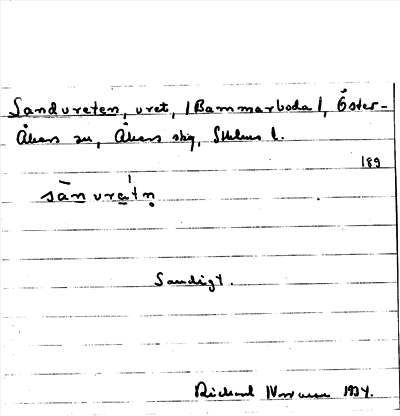 Sandvreten, vret, /Bammarboda/, Öster-
Åkers sn, Åkers skg, Sthlms l.
189
Sandigt.
Richard 1934.